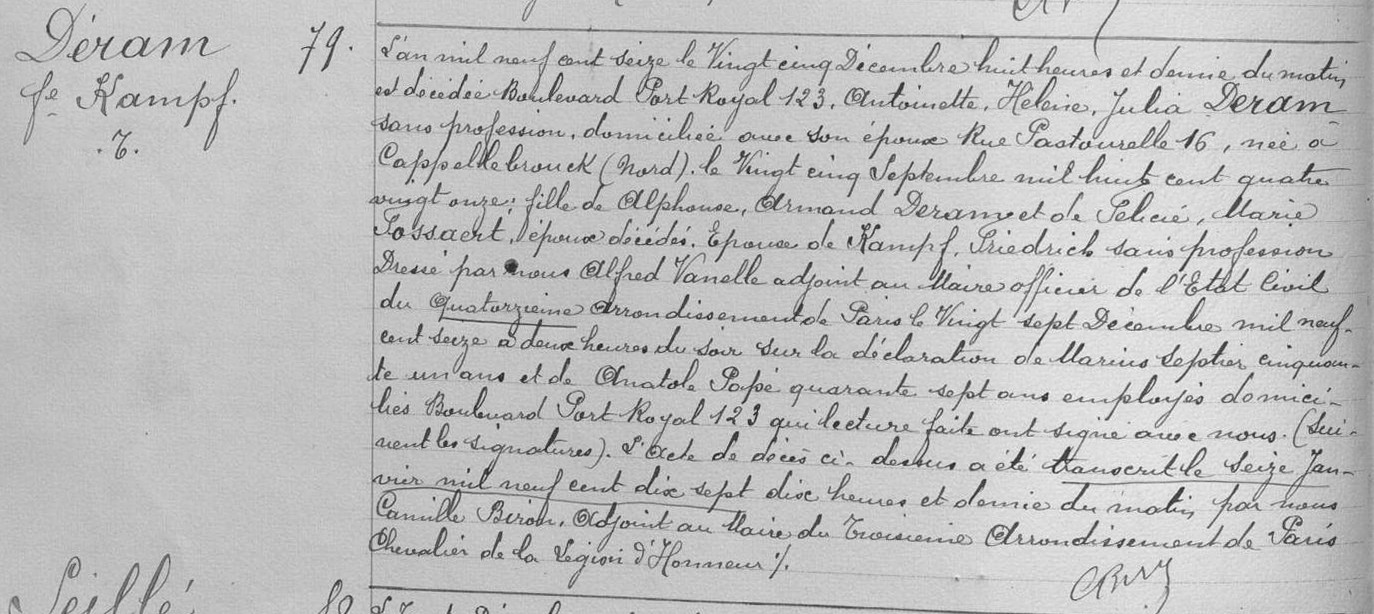 Déram
fe Kampf.
.T.
79.
L'an mil neuf cent seize le Vingt cinq Décembre huit heures et demie du matin,
est décédée Boulevard Port Royal 123, Antoinette, Helène, Julia Deram
sans profession, domiciliée avec son époux Rue Pastourelle 16, née à
Cappellebrouck (Nord). le Vingt cinq Septembre mil huit cent quatre
vingt onze; fille de Alphonse, Armand Deram et de Felicie, Marie
Sossaert, époux décédés. Epouse de Kampf, Friedrich sans profession
Dressé par nous Alfred Vanelle adjoint au Maire officier de l'Etat Civil
du Quatorzième Arrondissement de Paris le Vingt sept Décembre mil neuf-
cent seize à deux heures du soir sur la déclaration de Marius Septier cinquan-
te un ans et de Anatole Papé quarante sept ans employés domici-
liés Boulevard Port Royal 123 qui lecture faite ont signé avec nous. (Sui-
vent les signatures). L'Acte de décès ci-dessus a été transcrit le Seize Jan-
vier mil neuf cent dix sept dix heures et demie du matin, par nous
Camille Biron, Adjoint au Maire du Troisième Arrondissement de Paris
Chevalier de la Légion d'Honneur ./.
Seillé
80